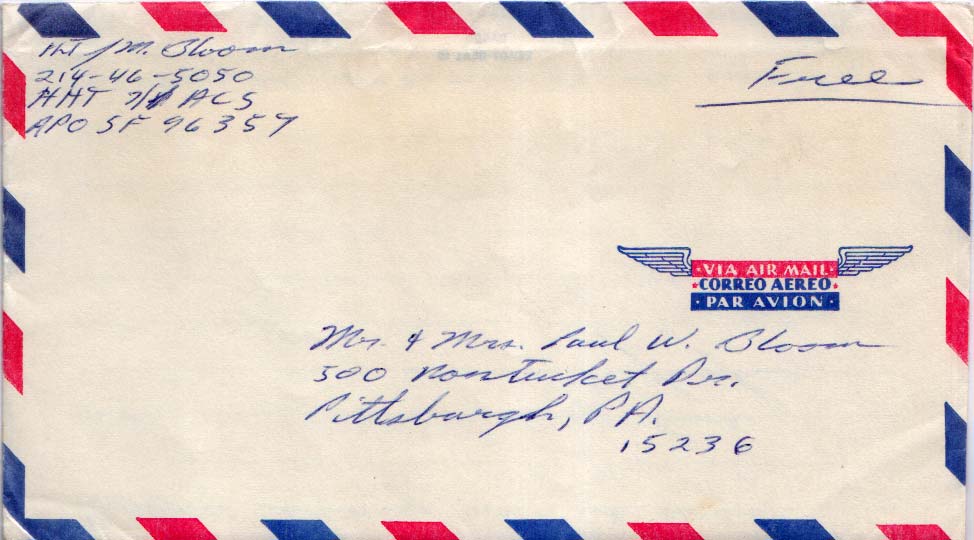 J M. Bloom
214-46-5050
HHT 7/1 ACS
APO SF 96357
Free
VIA AIR MAIL
CORREO AEREO
PAR AVION
Mr. & Mrs. Paul W. Bloom
500 Nantucket Dr.
Pittsburgh, PA.
15236